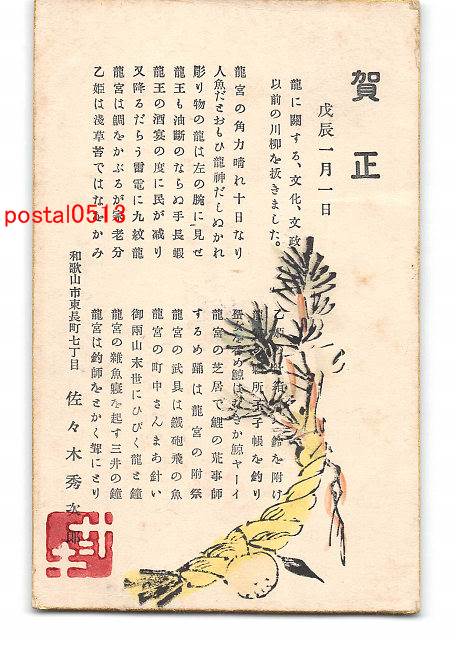 賀正
戊辰一月一日
龍に關する、文化、文政
以前の川柳を抜きました。
龍宮の角力晴れ十日なり
人魚だとおもひ龍神だしぬかれ
彫り物の龍は左の腕に見せ
龍王も油斷のならぬ手長蝦
龍王の酒宴の度に民が減り
又降るだらう雷電に九紋龍
龍宮は鯛をかぶるが家老分
乙姫は浅草苔ではなをかみ
乙姫 鈴を附け
龍 所 子帳を釣り
鯨ヤーイ
龍宮の芝居で鯉の荒事師
するめ踊は龍宮の附祭
龍宮の武具は鐵砲飛の魚
龍宮の町中さんまあ針い
御雨山末世にひびく龍と鐘
龍宮の雑魚寢を起す三井の鐘
龍宮は釣師をとかく聟にとり
和歌山市東長町七丁目
佐々木秀次郎
postal0513